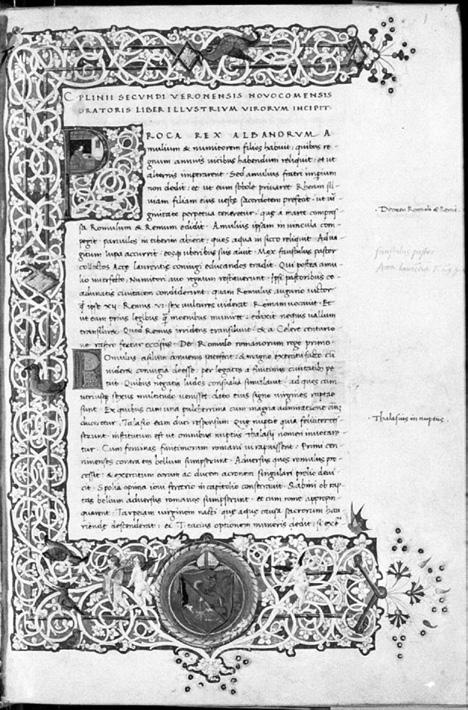 C PLINII SECUNDI VERONENSIS NOVOCOMENSIS
ORATORIS LIBER ILLUSTRIUM VIRORUM INCIPIT
PROCA REX ALBANORUM A
mulium & numitorem filios habuit, quibus re
gnum annuis vicibus habendum reliquit, et ut
alternis imperarent. Sed amulius fratri imperium
non dedit, et ut eum sobole privaret Rheam sil
viam filiam eius veste sacerdotem prefecit, ut vir
ginitate perpetua teneretur, que a marte compres
sa Romulum & Remum edidit. Amulius ipsam in vincula con
pegit, parvulos in tiberim abiecit, quos aqua in sicco reliquit. Ad va
gitum lupa accurrit, eosque uberibus suis aluit. Mox faustulus pastor
collectos Acce laurentie coniugi educandos tradit. Qui postea amu
lio interfecto, Numitori avo regnum restituerunt. Ipsi pastoribus co
adunatis civitatem condiderunt, quam Romulus augurio victor
Remus VI, sex vultures viderat, Romam vocavit. Et
ut eam prius legibus quam moenibus muniret, edixit nequis vallum
transiliret. Quod Remus irridens transilivit, & a Celere centurio
ne rastro fertur occisus. De Romulo romanorum rege primo
ROmulus asilum convenis patefecit, & magno exercitu facto cum
videret coniugia deesse, per legatos a finitimis civitatibus pe
tiit. Quibus negatis ludos consualia simulavit, ad quos cum
utriusque sexus multitudo venisset, dato suis signo virgines rapte
sunt. Ex quibus cum una pulcherrima cum magna admiratione om
duceretur, Talasio eam duci responsum. Que nuptie quia feliciter ces
serant, institutum est ut omnibus nuptiis Thalasii nomen invocare
tur. Cum feminas finitimorum romani vi rapuissent, Primi ce
ninenses contra eos bellum sumpserunt. Adversus quos romulus pro
cessit, & exercitum eorum ac ducem acronem singulari prelio devi
cit. Spolia opima iovi feretrio in capitolio consecravit. Sabini ob rap
tas bellum adversus romanos sumpserunt, et cum rome appropin
quarent, Tarpeiam virginem nacti que aque causa sacrorum hau
riende descenderat, ei T. tacius optionem muneris dedit, si exer
De ortu Romuli & Remi
faustulus pastor
Acca laurentia
Thalasius in nuptiis